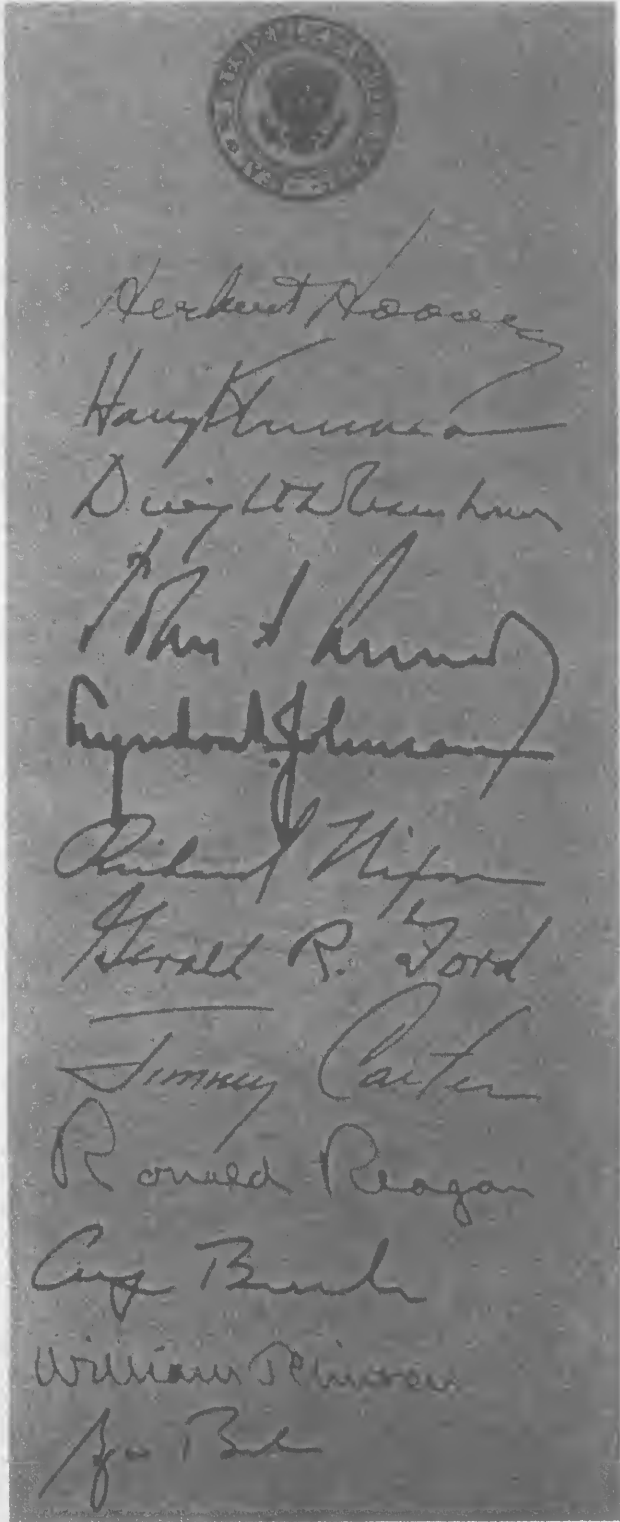 Herbert Hoover
Harry Truman
Dwight D Eisenhower
John F Kennedy
Lyndon B. Johnson
Richard Nixon
Gerald R. Ford
Jimmy Carter
Ronald Reagan
George Bush
William J Clinton
George Bush